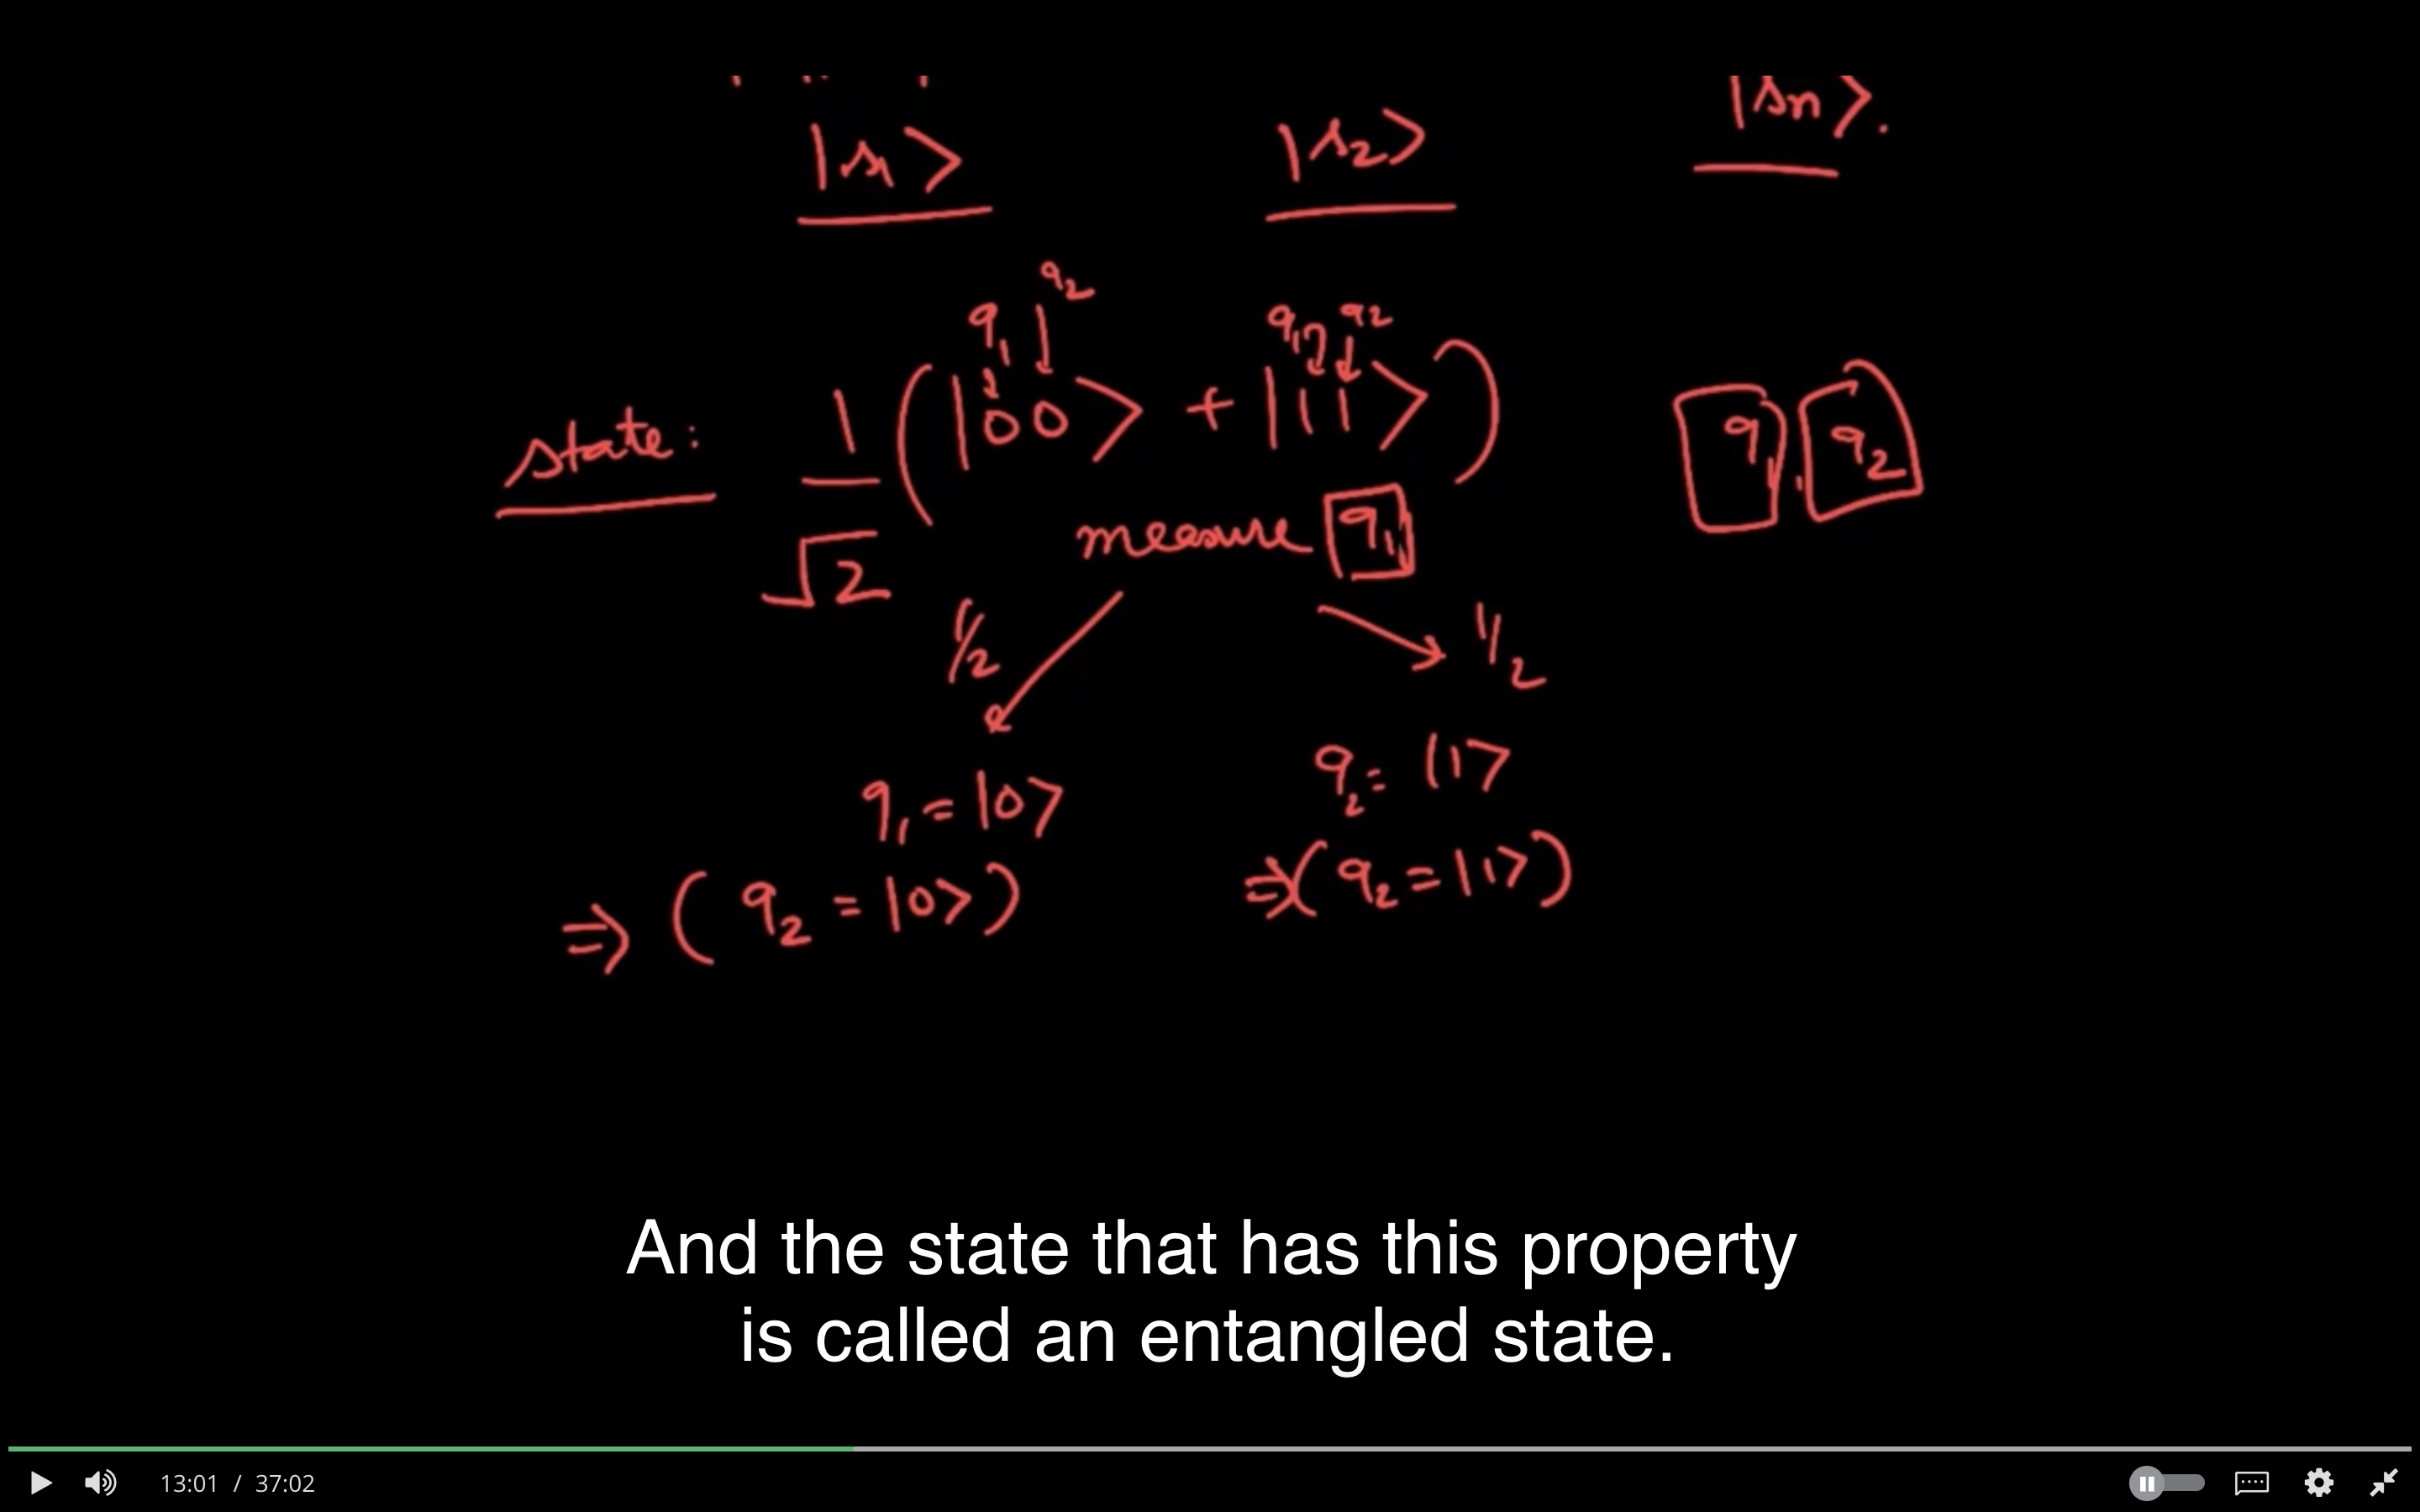 |s1> |s2> |sn>.
q1 q2 q1 q2
state: 1/√2 (|00> + |11>) q1, q2
measure q1
1/2 1/2
q1 = |0> q2 = |1>
⇒ (q2 = |0>) ⇒ (q2 = |1>)
And the state that has this property
is called an entangled state.
13:01 / 37:02